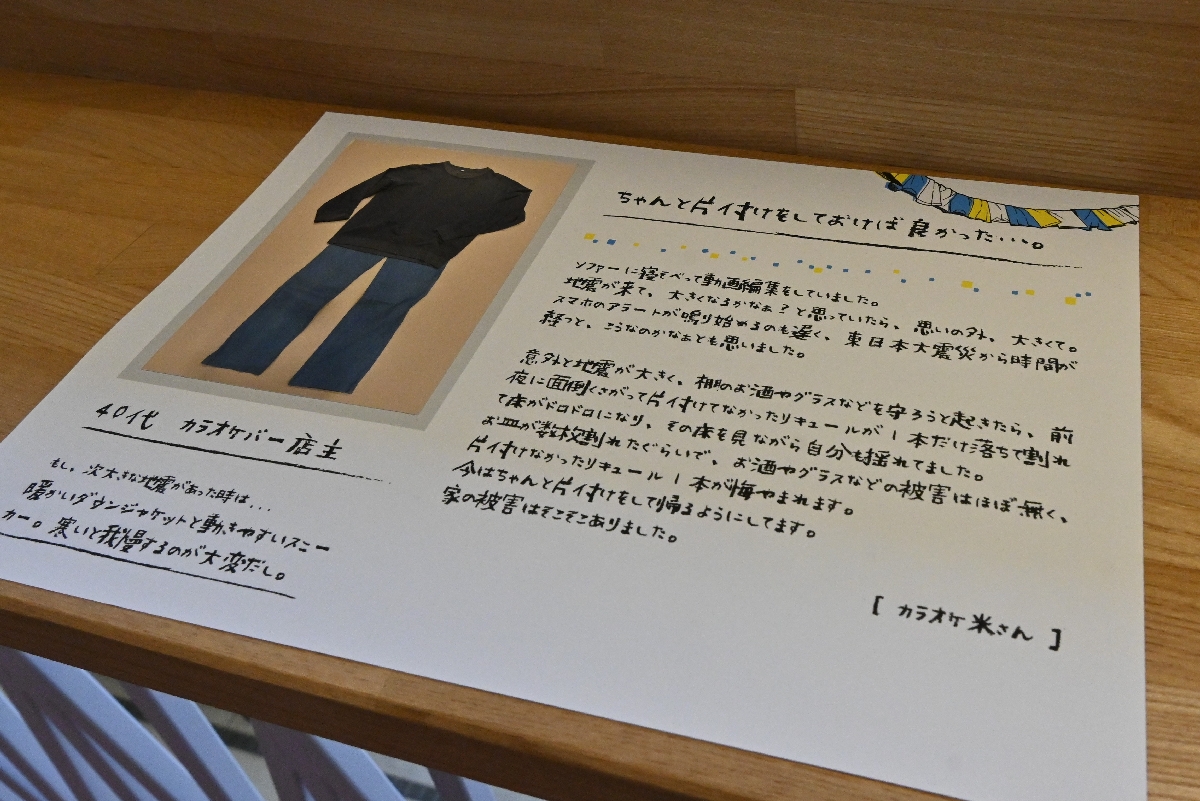 ちゃんと片付けをしておけば良かった...。
ソファーに寝そべって動画編集をしていました。
地震が来て、大きくなるかなぁ?と思っていたら、思いの外、大きくて。
スマホのアラートが鳴り始めるのも遅く、東日本大震災から時間が
経つと、こうなのかなぁとも思いました。
意外と地震が大きく、棚のお酒やグラスなどを守ろうと起きたら、前
夜に面倒くさがって片付けてなかったリキュールが1本だけ落ちて割れ
て床がドロドロになり、その床を見ながら自分も揺れてました。
お皿が数枚割れたぐらいで、お酒やグラスなどの被害はほぼ無く、
片付けなかったリキュール1本が悔やまれます。
今はちゃんと片付けをして帰るようにしてます。
家の被害はそこそこありました。
[ カラオケ米さん ]
40代 カラオケバー店主
もし、次大きな地震があった時は...
暖かいダウンジャケットと動きやすいスニー
カー。寒いと我慢するのが大変だし。